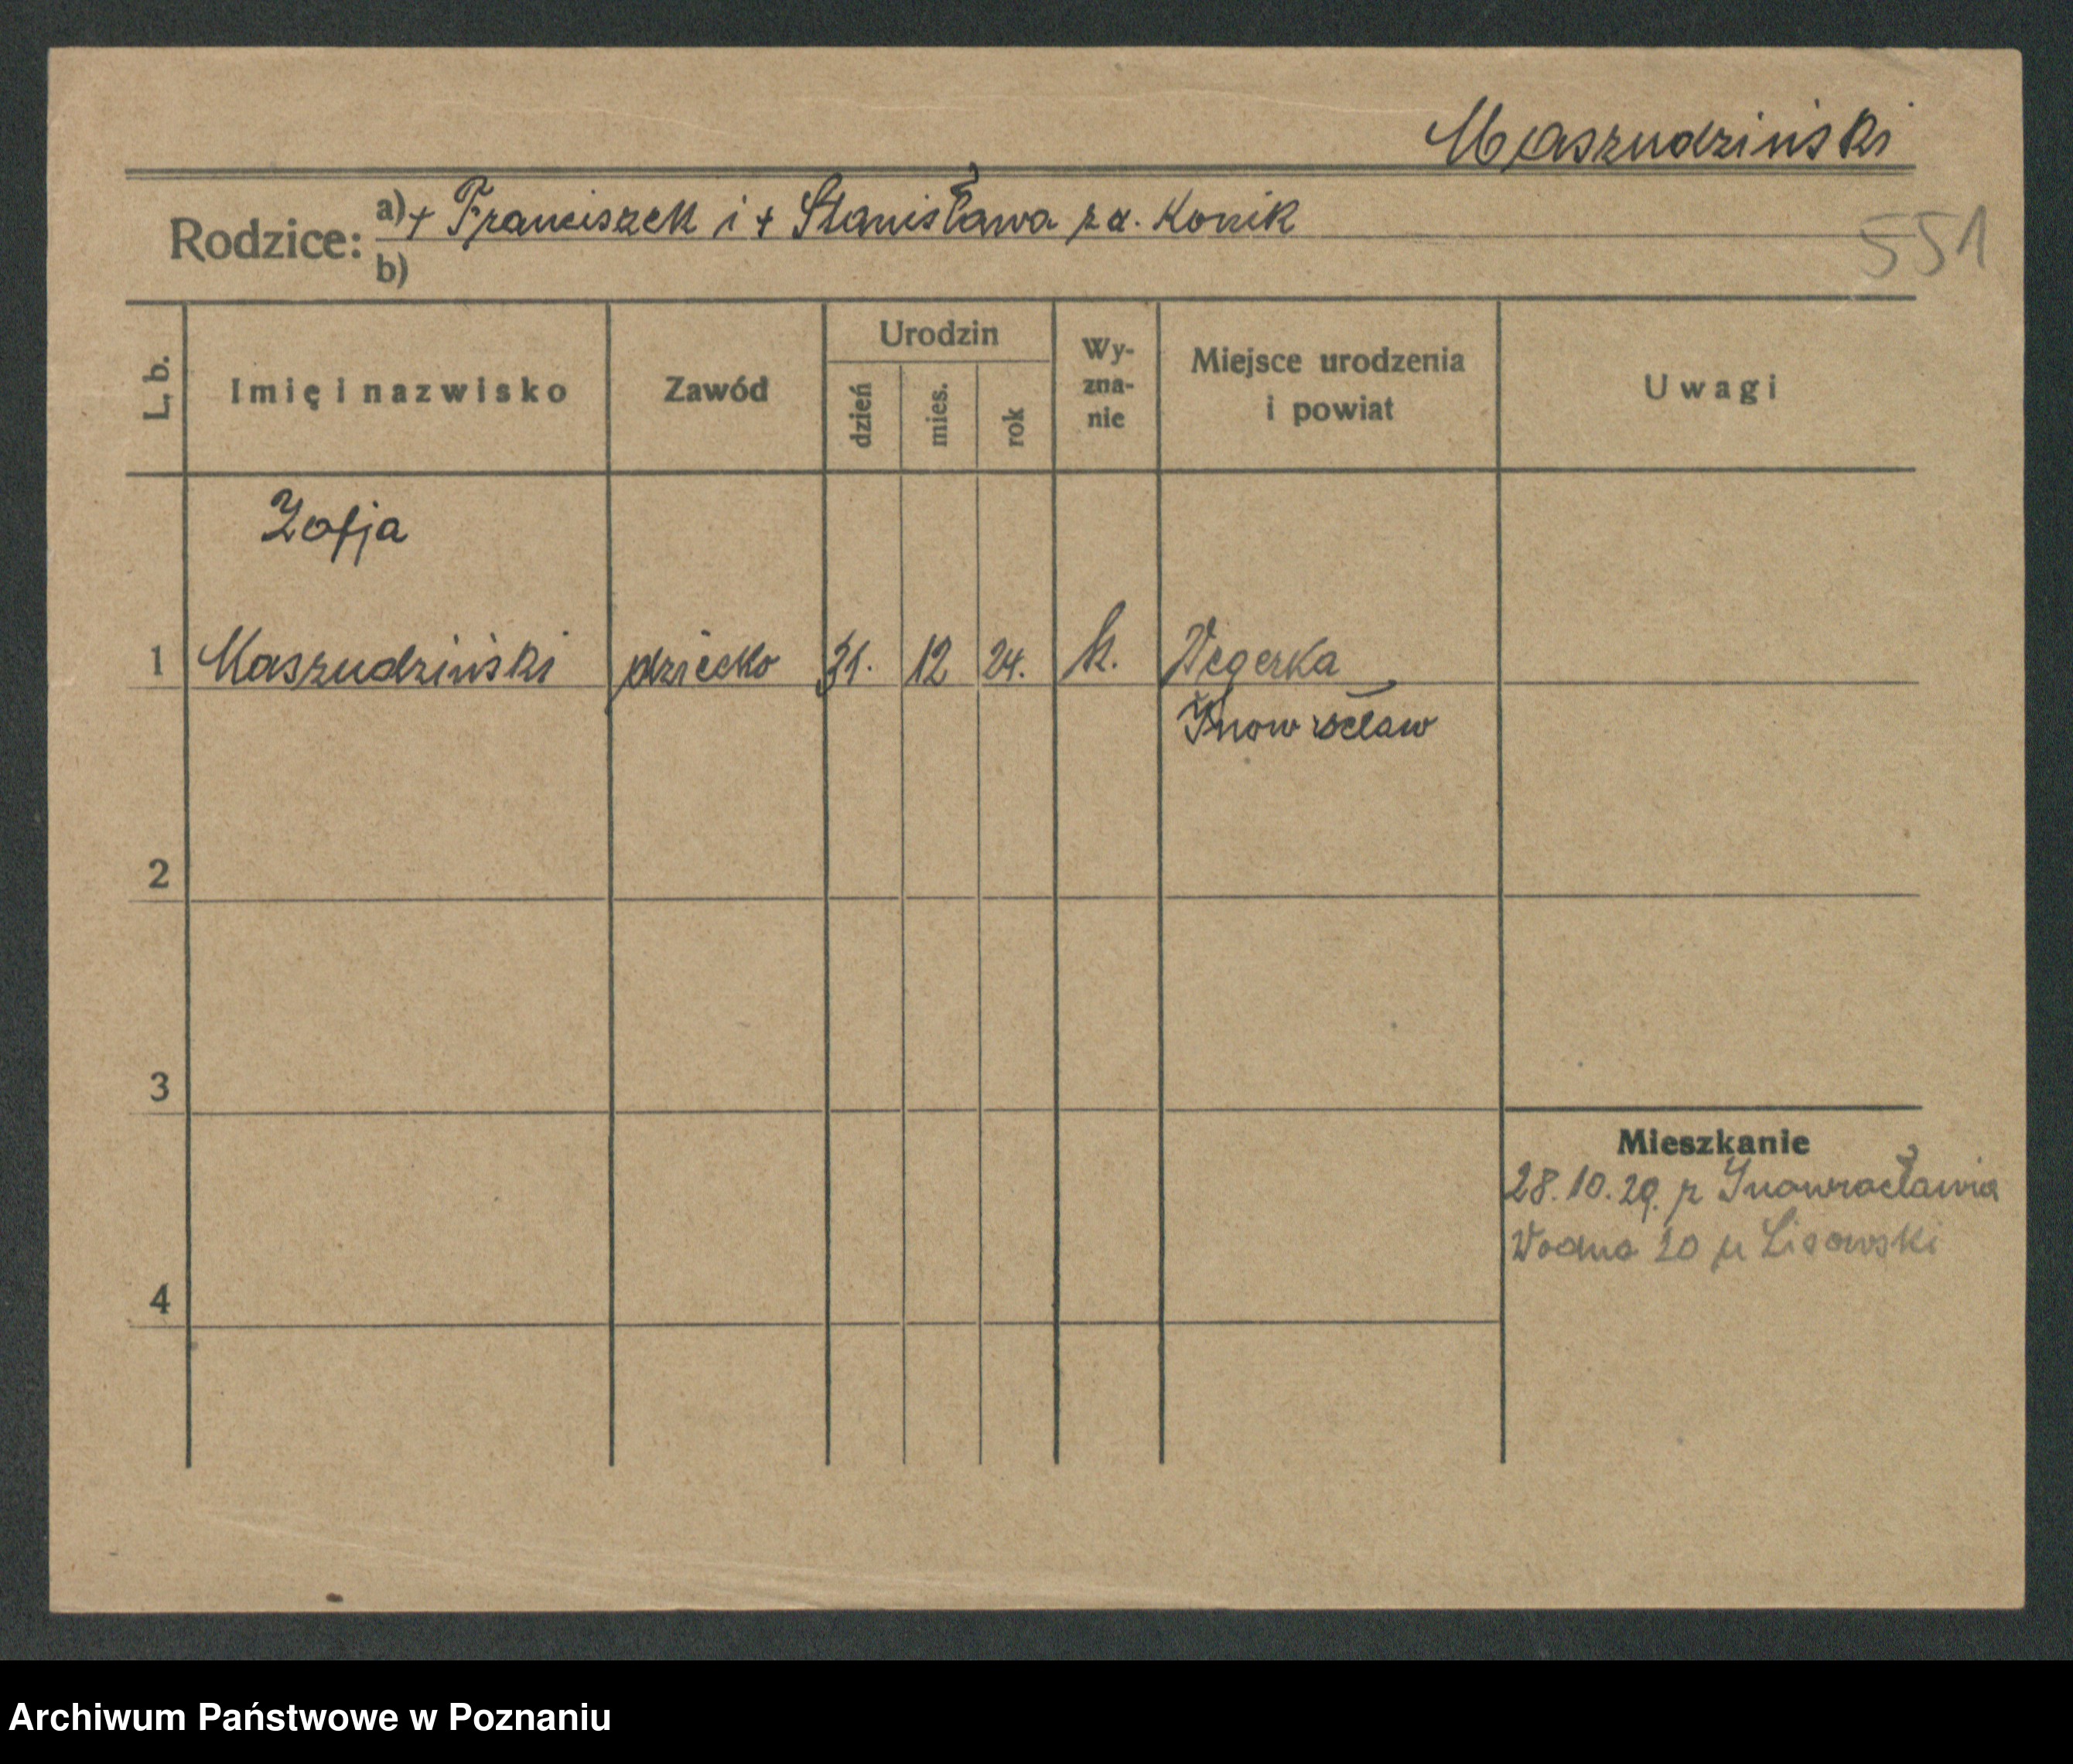 Maszudziński
Rodzice: a) + Franciszek i + Stanisława zd. Konik
b)
551
L. b.
Imię i nazwisko
Zawód
Urodzin
dzień
mies.
rok
Wy-
zna-
nie
Miejsce urodzenia
i powiat
Uwagi
Zofja
1 Maszudziński dziecko 31. 12 24. k. Wegerka
Inowrocław
2
3
4
Mieszkanie
28.10.29. z Inowrocławia
Wodna 20 u Lisowski
Archiwum Państwowe w Poznaniu